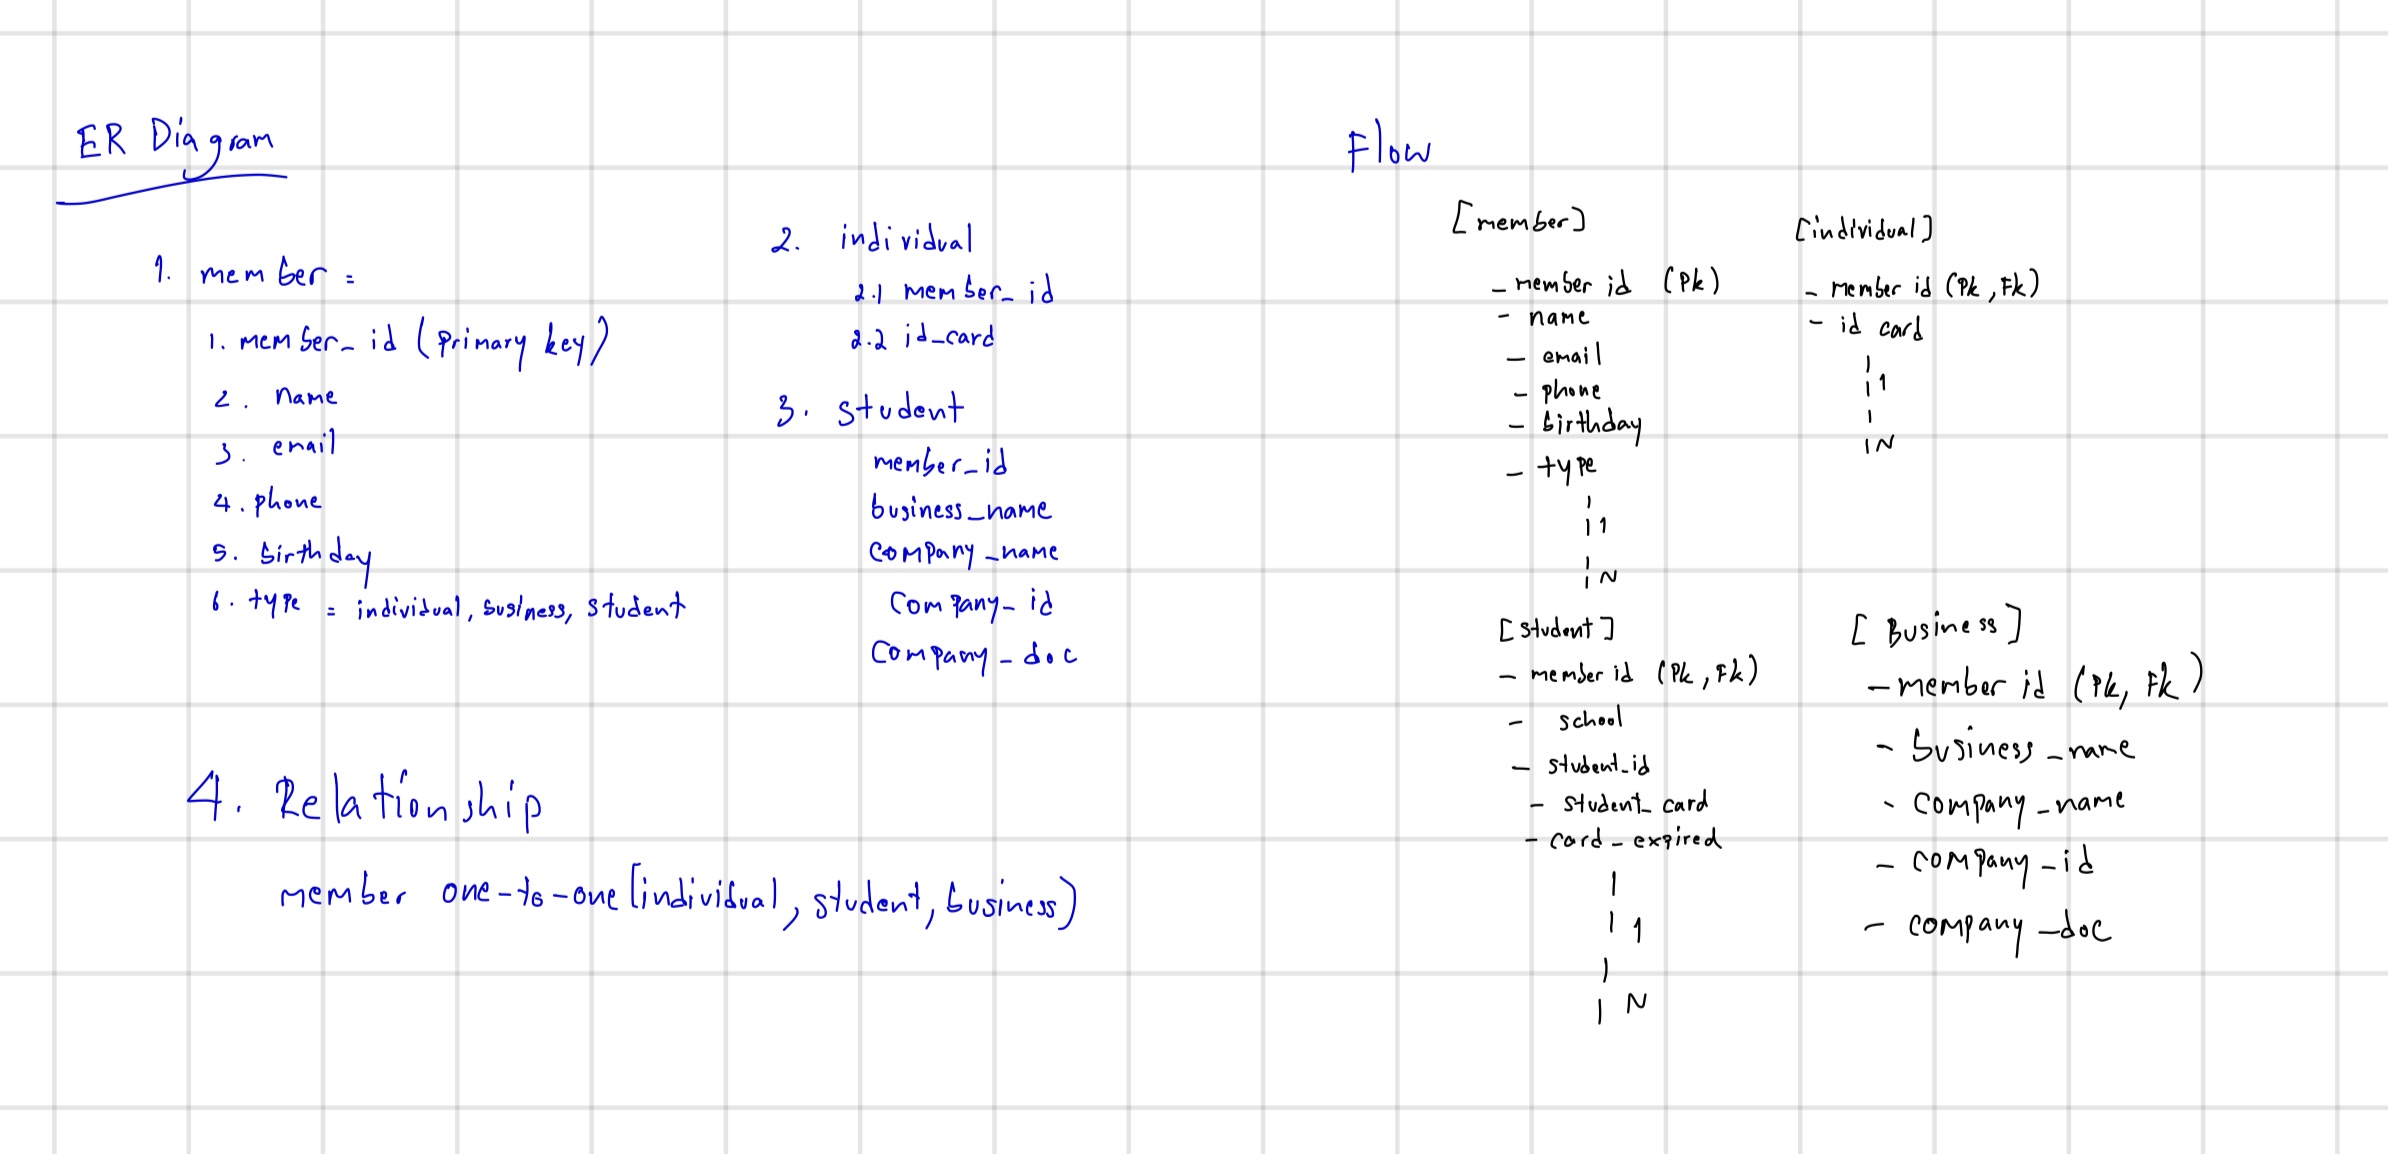 ER Diagram
1. member =
1. member_id (primary key)
2. name
3. email
4. phone
5. birthday
6. type = individual, business, student
2. individual
2.1 member_id
2.2 id_card
3. student
member_id
business_name
company_name
company_id
company_doc
4. Relationship
member one-to-one [individual, student, business)
Flow
[member]
- member id (Pk)
- name
- email
- phone
- birthday
- type
1
N
[individual]
- member id (Pk, Fk)
- id card
1
N
[student]
- member id (Pk, Fk)
- school
- student_id
- student_card
- card_expired
1
N
[Business]
- member id (Pk, Fk)
- business_name
- company_name
- company_id
- company_doc